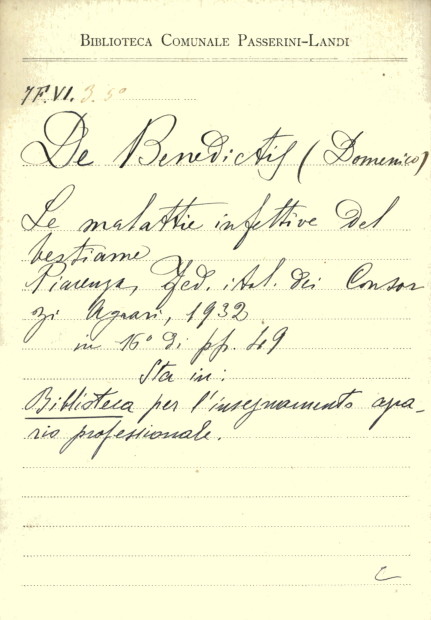 BIBLIOTECA COMUNALE PASSERINI-LANDI
7F.VI. 3. 50
De Benedictis (Domenico)
Le malattie infettive del
bestiame
Piacenza, Fed. ital. dei Consor
zi Agrari, 1932
in 16° di pp. 49
Sta in:
Biblioteca per l'insegnamento agra-
rio professionale.
C